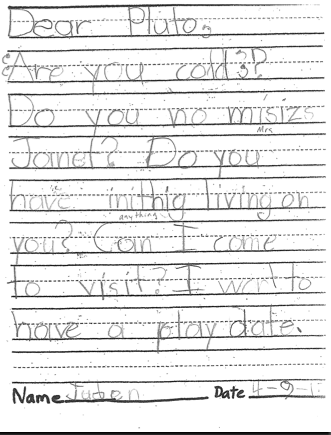 Dear Pluto,
Are you cold??
Do you no misizs
Mrs
Janet? Do you
have inithig living on
anything
you? Can I come
to visit? I wont to
have a play date.
Name Juben Date 4-9-1